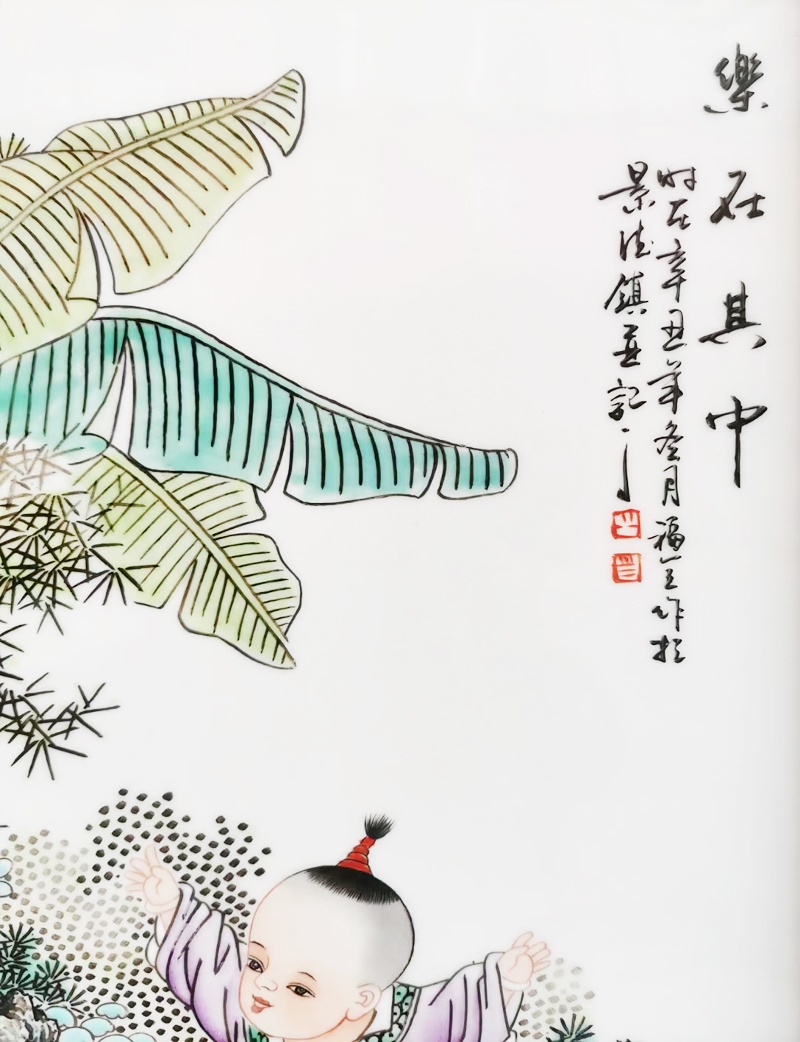 樂在其中
时在辛丑年冬月福作於
景德鎮並記